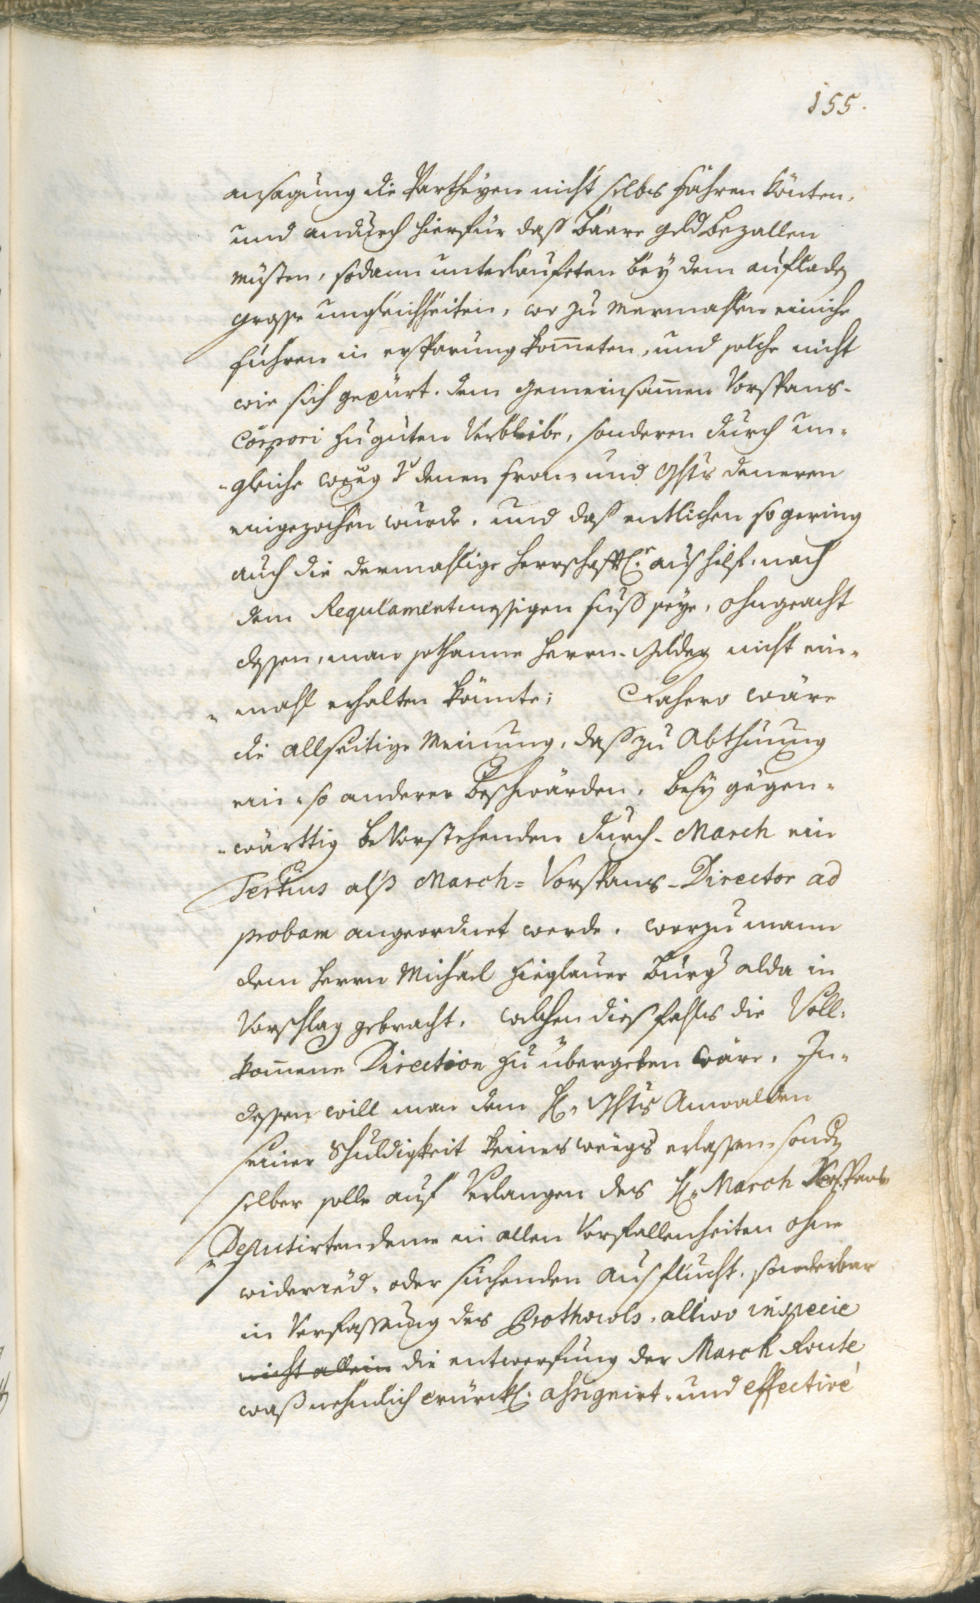 155.
ansagung die Partheyen nicht selbs führen könten,
und andurch hierfür daß baare geld bezallen
müsten, sodann unterlauffeten bey dem aufladen
grosse ungleichheiten, wo zu mermahlen einiche
fuhren in ersparung kommeten, und solche nicht
wie sich gepürt. dem gemeinsammen Vorspans-
Corpori zu guten verbleibe, sonderen durch un-
gleiche denen fron- und Ghts deneren
eingezochen wurde. und daß entlichen so gering
auch die dermahlige herrschafftl: aushilf, nach
dem Regulamentmessigen fuß seye, ohngeacht
dessen, man sothanne herrn-gelder nicht ein-
mahl erhalten könnte; Dahero wäre
die allseitige Meinung, daß zu Abthuung
ein- so anderer beschwärden, bey gegen-
wärttig bevorstehenden durch-March ein
Tertius alß March-Vorspans-Director ad
probam angeordnet werde. worzu mann
dem herrn Michael Hieglauer Burg: alda in
Vorschlag gebracht. welchen diesfahls die Voll-
kommene Direction zu übergeben wäre. In-
dessen will man dem H: Ghts Anwalden
seiner Schuldigkeit keineswegs erlassen, sondern
selber solle auf verlangen des H: March Vorspans
Deputirten deme in allen vorfallenheiten ohne
widerred, oder suchenden Ausflucht, sonderbar
in Verfassung des Prothocols, allwo in specie
nicht allein die entwerfung der March Route
waß nehmlich assignirt, und effective